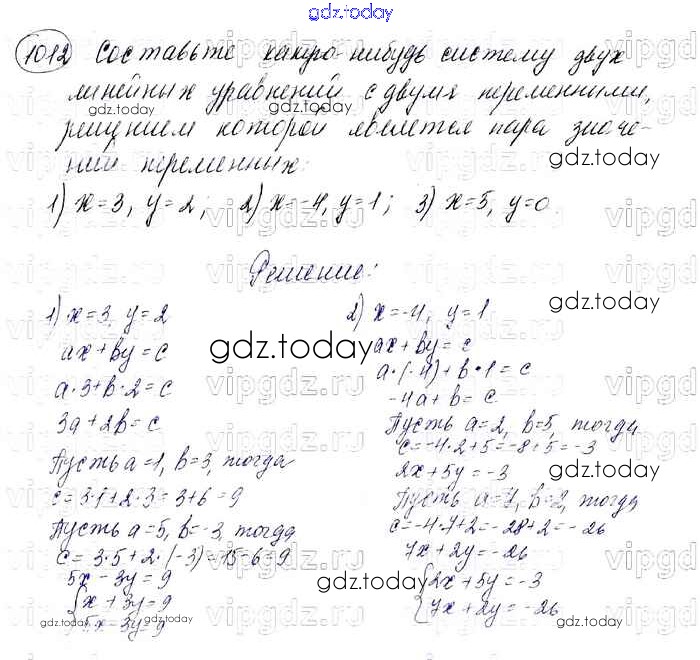 gdz.today
1012 Составьте какую-нибудь систему двух
линейных уравнений с двумя переменными,
решением которой является пара значе-
ний переменных:
1) x=3, y=2; 2) x=-4, y=1; 3) x=5, y=0.
Решение:
1) x=3, y=2
ax+by=c
a·3+b·2=c
3a+2b=c
Пусть a=1, b=3, тогда
c=3·1+2·3=3+6=9
Пусть a=5, b=-3, тогда
c=3·5+2·(-3)=15-6=9
5x-3y=9
{x+3y=9
5x-3y=9
2) x=-4, y=1
ax+by=c
a·(-4)+b·1=c
-4a+b=c
Пусть a=2, b=5, тогда
c=-4·2+5=-8+5=-3
2x+5y=-3
Пусть a=7, b=2, тогда
c=-4·7+2=-28+2=-26
7x+2y=-26
{2x+5y=-3
7x+2y=-26
gdz.today
gdz.today
gdz.today
gdz.today
gdz.today
gdz.today
gdz.today
gdz.today
gdz.today